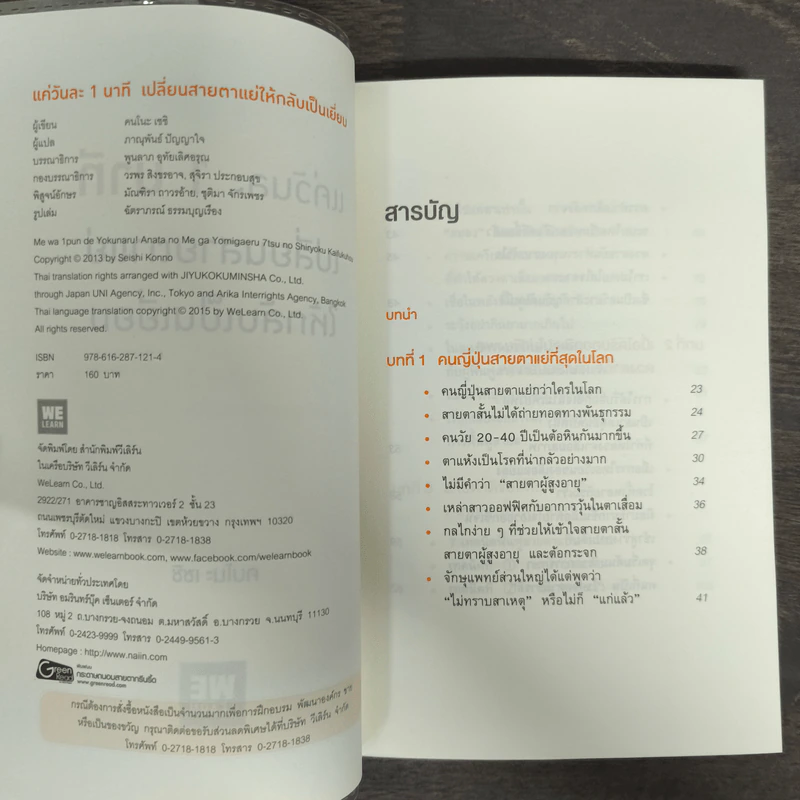 แค่วันละ 1 นาที เปลี่ยนสายตาแย่ให้กลับเป็นเยี่ยม
ผู้เขียน คนโนะ เซชิ
ผู้แปล ภาณุพันธ์ ปัญญาใจ
บรรณาธิการ พูนลาภ อุทัยเลิศอรุณ
กองบรรณาธิการ วรพร สิงขรอาจ, สุจิรา ประกอบสุข
พิสูจน์อักษร มัณฑิรา ถาวรอ้าย, ชุติมา จักรเพชร
รูปเล่ม ฉัตราภรณ์ ธรรมบุญเรือง
Me wa 1pun de Yokunaru! Anata no Me ga Yomigaeru 7tsu no Shiryoku Kaifukuhou
Copyright © 2013 by Seishi Konno
Thai translation rights arranged with JIYUKOKUMINSHA Co., Ltd.
through Japan UNI Agency, Inc., Tokyo and Arika Interrights Agency, Bangkok
Thai language translation copyright © 2015 by WeLearn Co., Ltd.
All rights reserved.
ISBN 978-616-287-121-4
ราคา 160 บาท
WE
LEARN
จัดพิมพ์โดย สำนักพิมพ์วีเลิร์น
ในเครือบริษัท วีเลิร์น จำกัด
WeLearn Co., Ltd.
2922/271 อาคารชาญอิสสระทาวเวอร์ 2 ชั้น 23
ถนนเพชรบุรีตัดใหม่ แขวงบางกะปิ เขตห้วยขวาง กรุงเทพฯ 10320
โทรศัพท์ 0-2718-1818 โทรสาร 0-2718-1838
Website : www.welearnbook.com, www.facebook.com/welearnbook
จัดจำหน่ายทั่วประเทศโดย
บริษัท อมรินทร์บุ๊ค เซ็นเตอร์ จำกัด
108 หมู่ 2 ถ.บางกรวย-จงถนอม ต.มหาสวัสดิ์ อ.บางกรวย จ.นนทบุรี 11130
โทรศัพท์ 0-2423-9999 โทรสาร 0-2449-9561-3
Homepage : http://www.naiin.com
Green Read
พิมพ์ด้วย
กระดาษถนอมสายตากรีนรี้ด
www.greenread.com
กรณีต้องการสั่งซื้อหนังสือเป็นจำนวนมากเพื่อการฝึกอบรม พัฒนาองค์กร ขาย
หรือเป็นของขวัญ กรุณาติดต่อขอรับส่วนลดพิเศษได้ที่บริษัท วีเลิร์น จำกัด
โทรศัพท์ 0-2718-1818 โทรสาร 0-2718-1838
สารบัญ
บทนำ
บทที่ 1 คนญี่ปุ่นสายตาแย่ที่สุดในโลก
• คนญี่ปุ่นสายตาแย่กว่าใครในโลก 23
• สายตาสั้นไม่ได้ถ่ายทอดทางพันธุกรรม 24
• คนวัย 20-40 ปีเป็นต้อหินกันมากขึ้น 27
• ตาแห้งเป็นโรคที่น่ากลัวอย่างมาก 30
• ไม่มีคำว่า “สายตาผู้สูงอายุ” 34
• เหล่าสาวออฟฟิศกับอาการวุ้นในตาเสื่อม 36
• กลไกง่าย ๆ ที่ช่วยให้เข้าใจสายตาสั้น
สายตาผู้สูงอายุ และต้อกระจก 38
• จักษุแพทย์ส่วนใหญ่ได้แต่พูดว่า
“ไม่ทราบสาเหตุ” หรือไม่ก็ “แก่แล้ว” 41